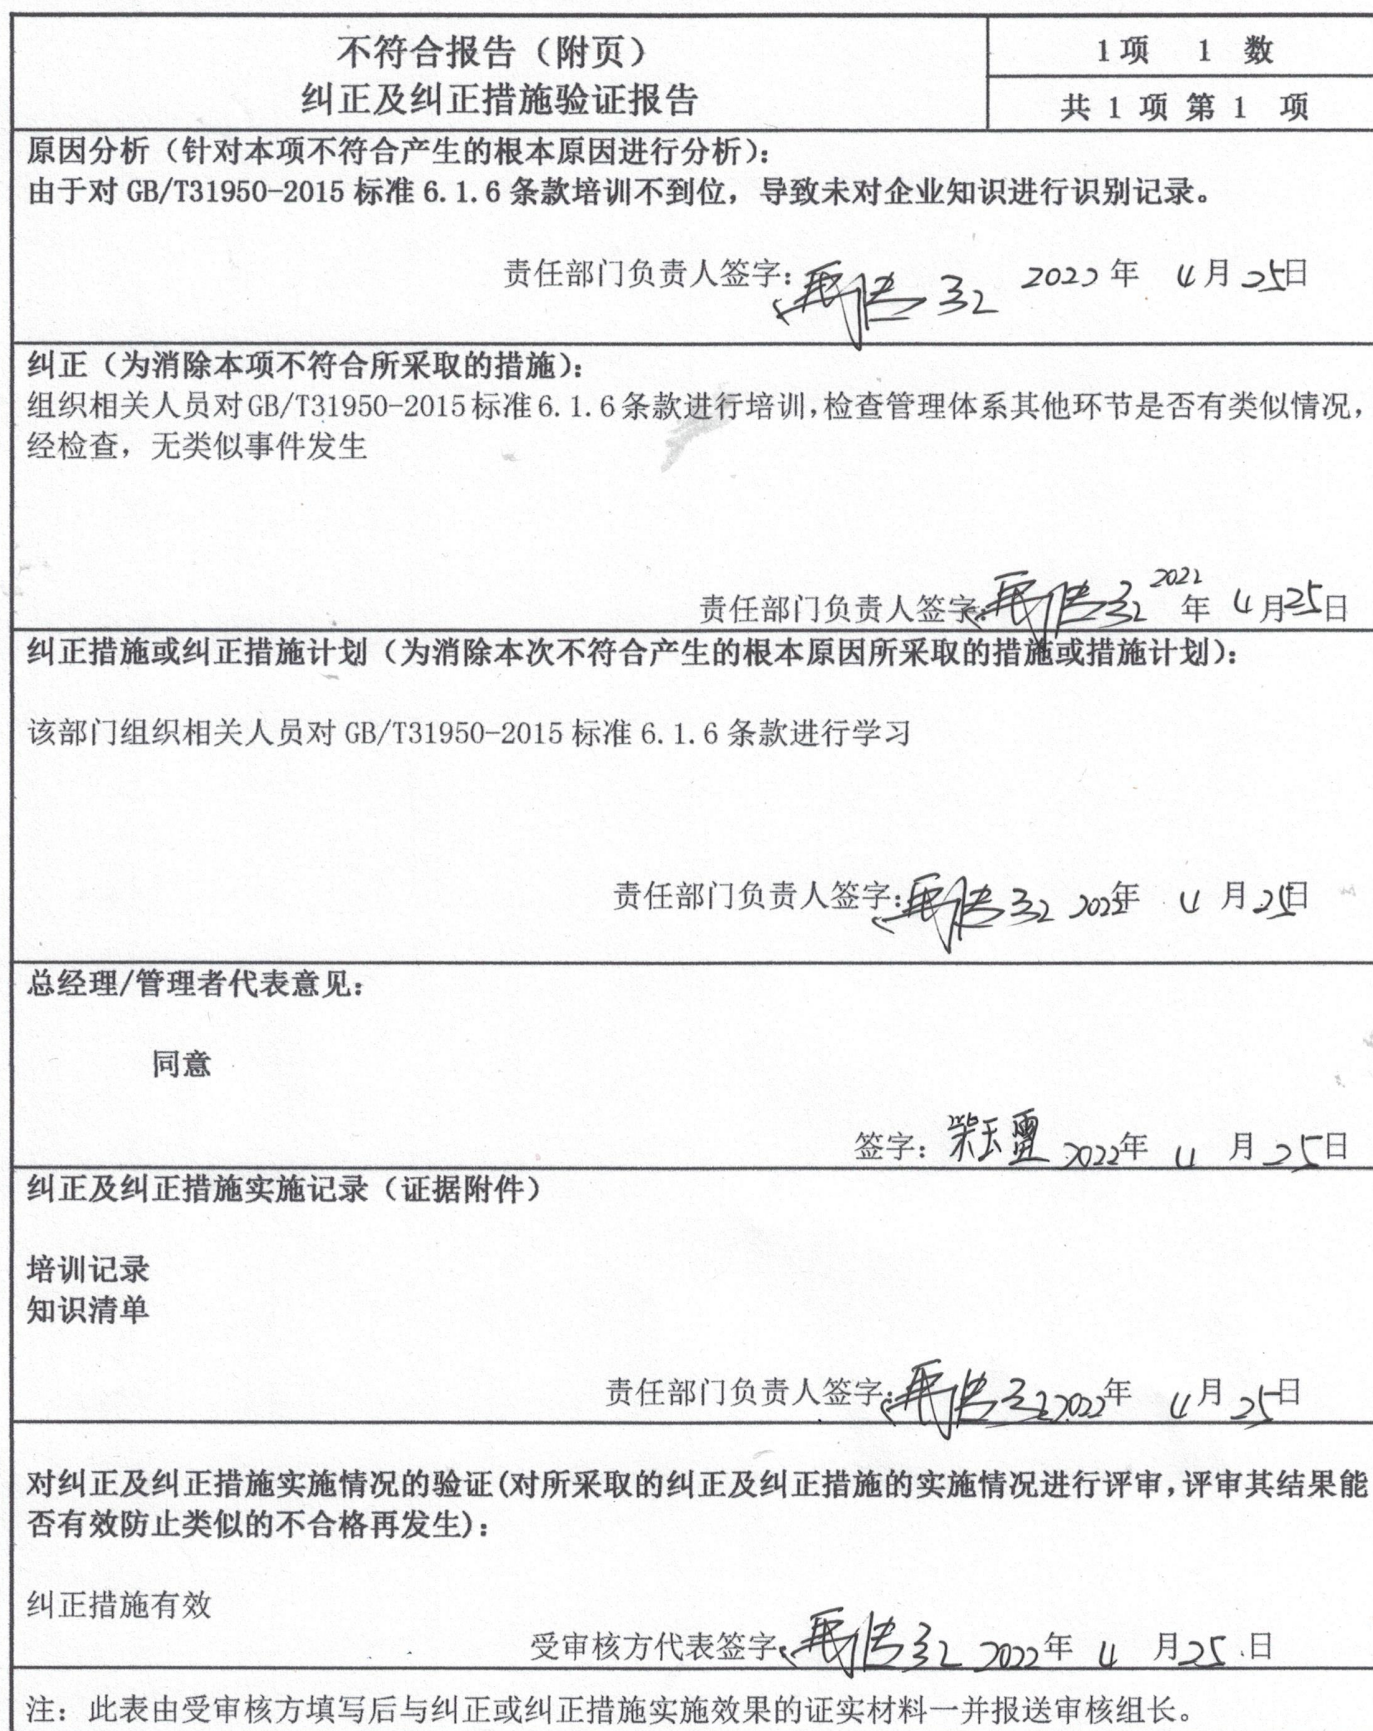 不符合报告（附页）
纠正及纠正措施验证报告
1项 1 数
共 1 项 第 1 项
原因分析（针对本项不符合产生的根本原因进行分析）：
由于对 GB/T31950-2015 标准 6.1.6 条款培训不到位，导致未对企业知识进行识别记录。
责任部门负责人签字： 2022年 4月25日
纠正（为消除本项不符合所采取的措施）：
组织相关人员对GB/T31950-2015标准6.1.6条款进行培训，检查管理体系其他环节是否有类似情况，
经检查，无类似事件发生
责任部门负责人签字： 2022年 4月25日
纠正措施或纠正措施计划（为消除本次不符合产生的根本原因所采取的措施或措施计划）：
该部门组织相关人员对 GB/T31950-2015 标准 6.1.6 条款进行学习
责任部门负责人签字： 2022年 4月25日
总经理/管理者代表意见：
同意
签字： 2022年 4月25日
纠正及纠正措施实施记录（证据附件）
培训记录
知识清单
责任部门负责人签字： 2022年 4月25日
对纠正及纠正措施实施情况的验证(对所采取的纠正及纠正措施的实施情况进行评审,评审其结果能
否有效防止类似的不合格再发生)：
纠正措施有效
受审核方代表签字： 2022年 4月25日
注：此表由受审核方填写后与纠正或纠正措施实施效果的证实材料一并报送审核组长。